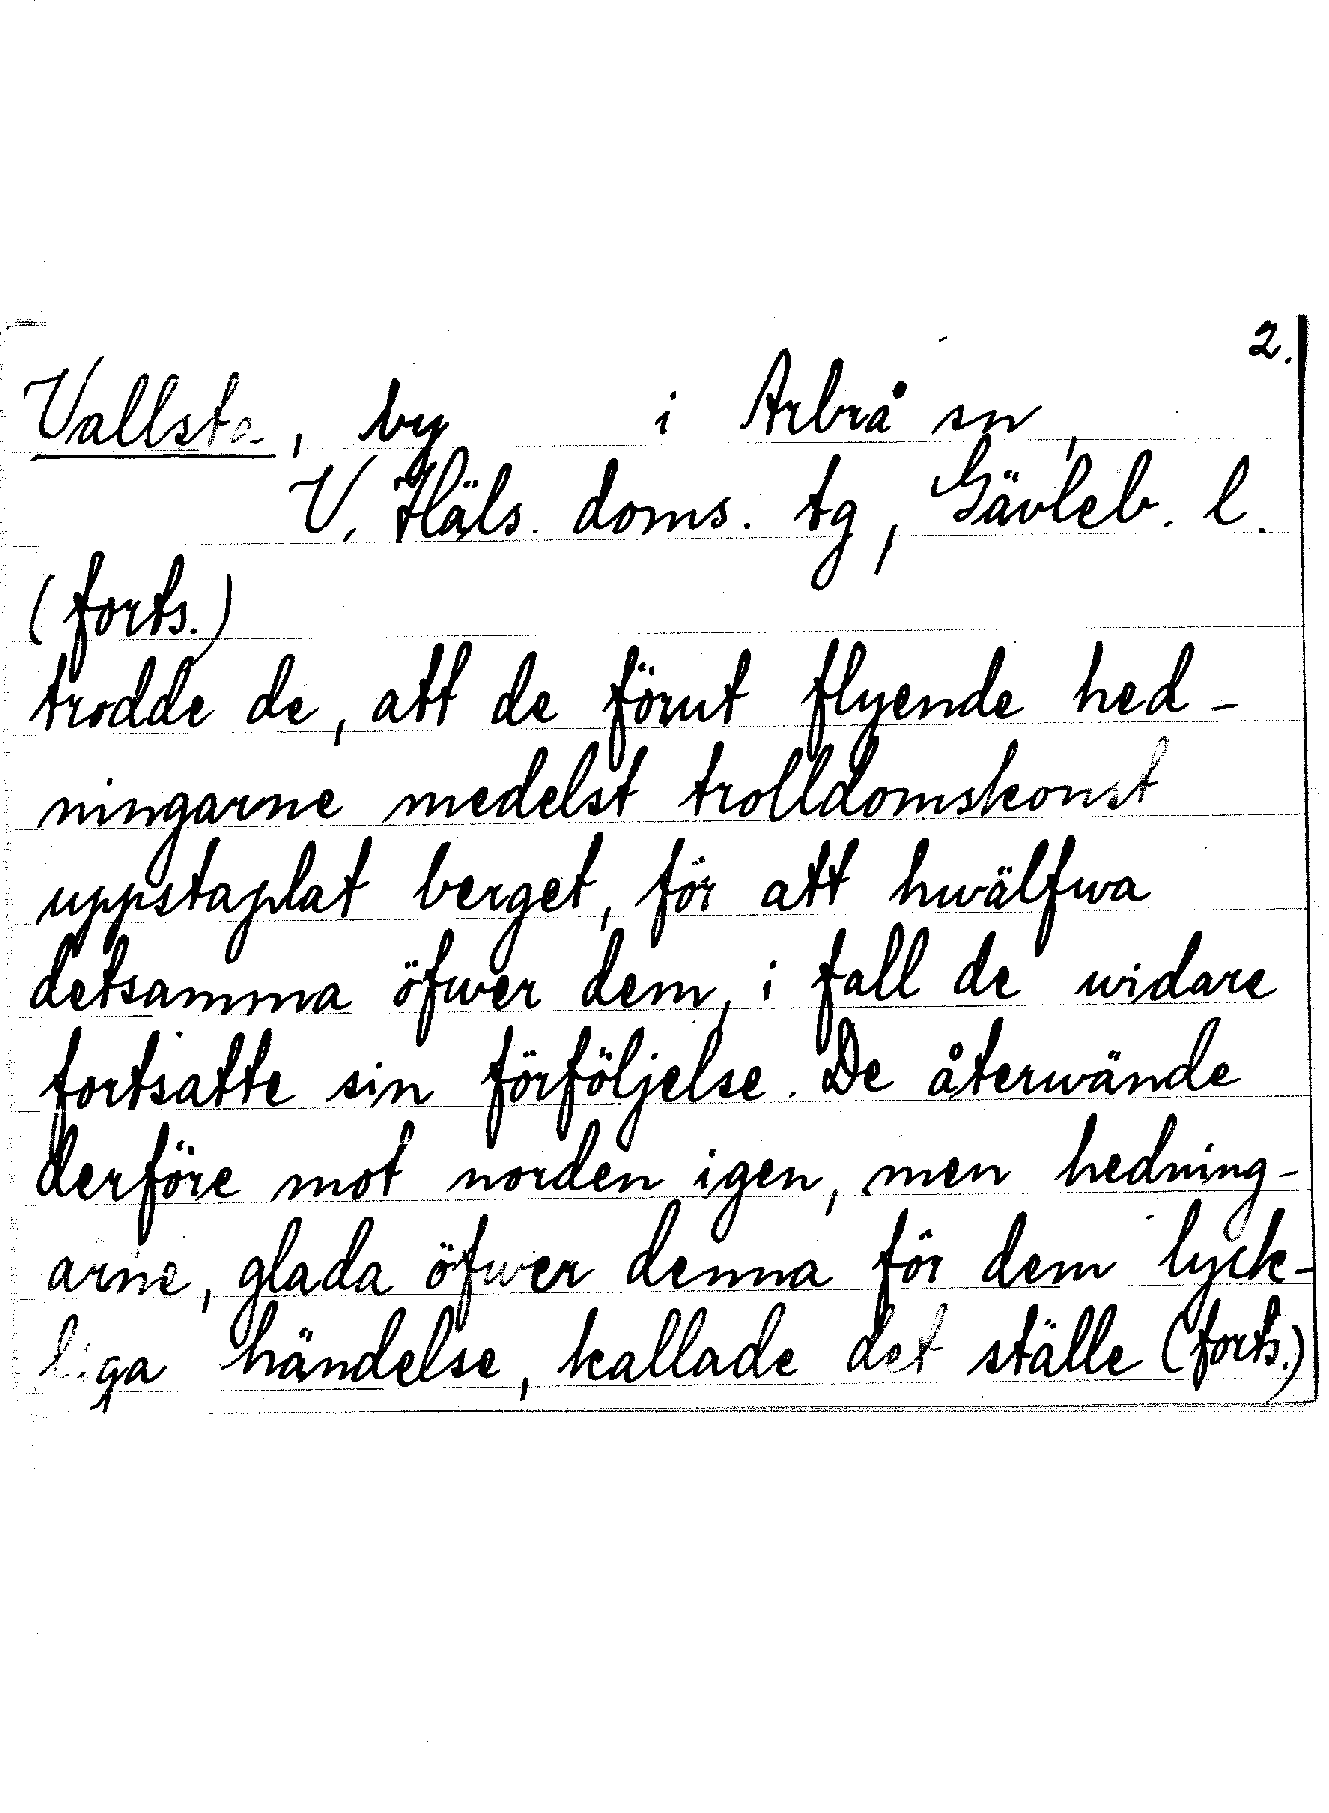 2.
Vallsta, by i Arbrå sn,
V. Häls. doms. tg, Gävleb. l.
(forts.)
trodde de, att de förut flyende hed-
ningarne medelst trolldomskonst
uppstaplat berget, för att hwälfwa
detsamma öfwer dem, i fall de widare
fortsatte sin förföljelse. De återwände
derföre mot norden igen, men hedning-
arne, glada öfwer denna för dem lyck-
liga händelse, kallade det ställe (forts.)